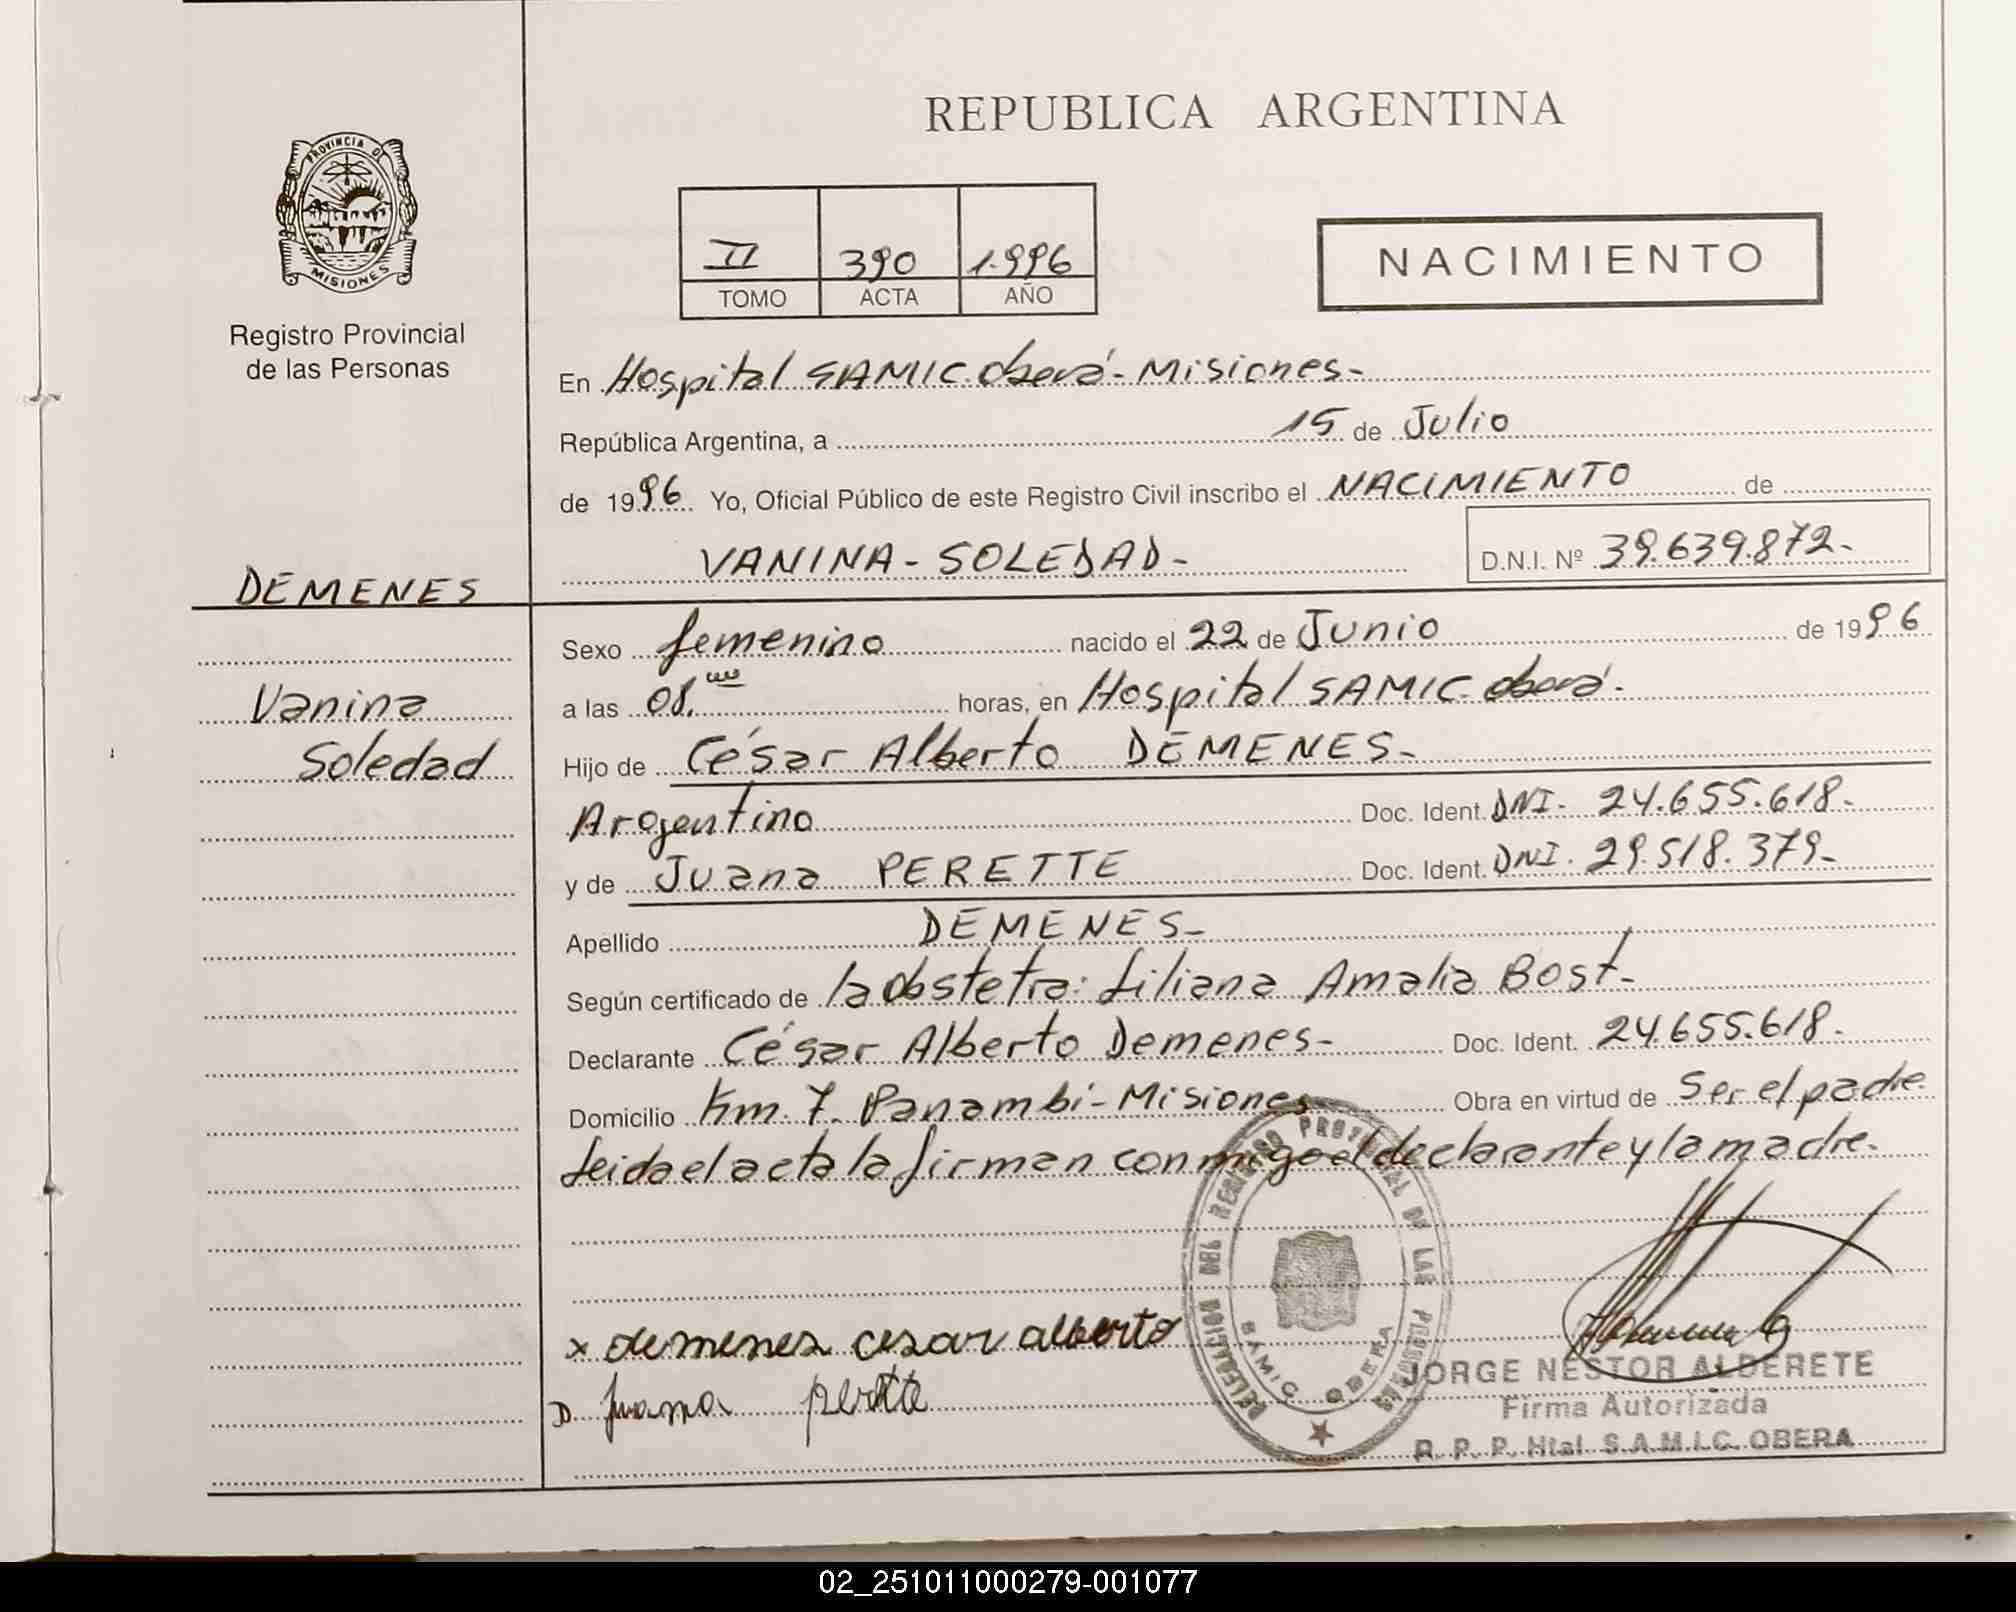 REPUBLICA ARGENTINA
PROVINCIA DE
MISIONES
Registro Provincial
de las Personas
II 390 1.996
TOMO ACTA AÑO
NACIMIENTO
En Hospital SAMIC. Oberá - Misiones-
República Argentina, a 15 de Julio
de 1996 Yo, Oficial Público de este Registro Civil inscribo el NACIMIENTO de
VANINA - SOLEDAD -
D.N.I. Nº 39.639.872.-
DEMENES
Vanina
Soledad
Sexo femenino nacido el 22 de Junio de 1996
a las 08. horas, en Hospital SAMIC. Oberá.
Hijo de César Alberto DEMENES-
Argentino Doc. Ident. DNI- 24.655.618-
y de Juana PERETTE Doc. Ident. DNI. 29.518.379-
Apellido DEMENES-
Según certificado de la obstetra: Liliana Amalia Bost-
Declarante César Alberto Demenes- Doc. Ident. 24.655.618-
Domicilio Km. 7. Panambí - Misiones Obra en virtud de Ser el padre
Leida el acta la firman conmigo el declarante y la madre-
x demenes cesar alberto
D. Juana perette
DELEGACION DEL REGISTRO PROVINCIAL DE LAS PERSONAS
SAMIC OBERA
JORGE NESTOR ALDERETE
Firma Autorizada
R. P. P. Htal. S.A.M.I.C. OBERA
02_251011000279-001077